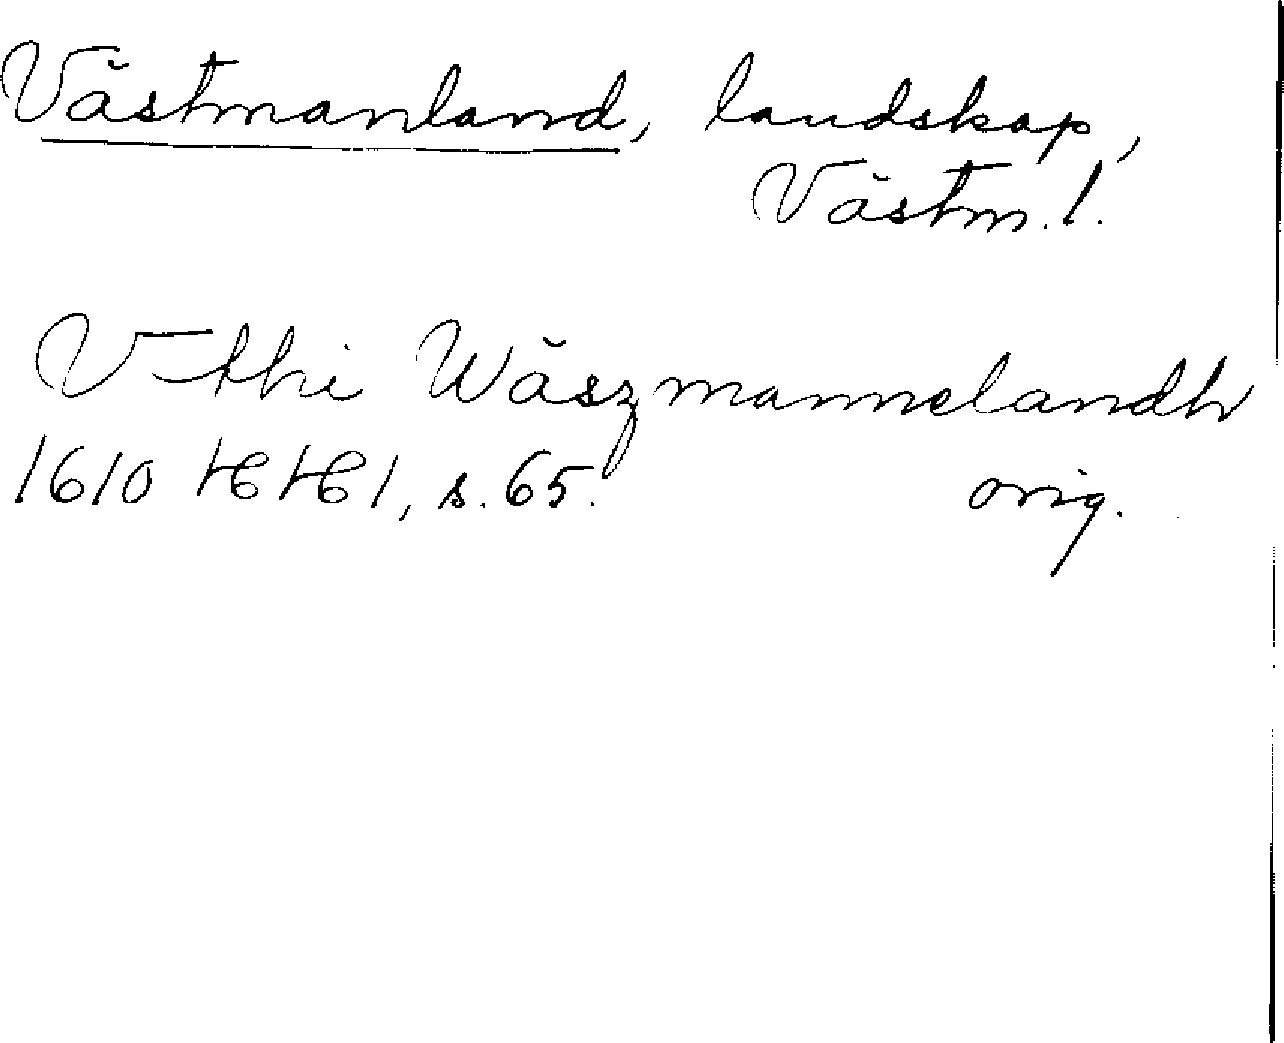 Västmanland, landskap,
Västm. l.
V-thi Wäszmannelandh
1610 HH 1, s. 65. orig.